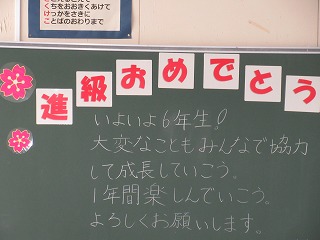 くちをおおきくあけて
けっかをさきに
ことばのおわりまで
進級おめでとう
いよいよ6年生!
大変なこともみんなで協力
して成長していこう。
1年間楽しんでいこう。
よろしくお願いします。